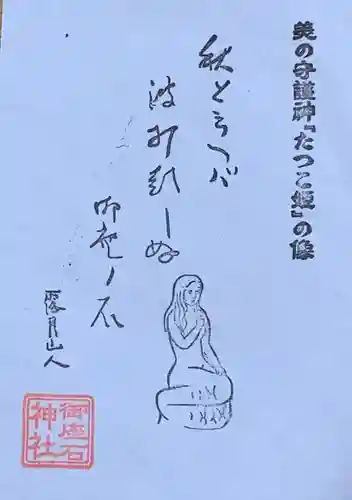 美の守護神『たつこ姫』の像
秋としへバ
波打別しぬ
御座ノ石
露月山人
御座石
神社